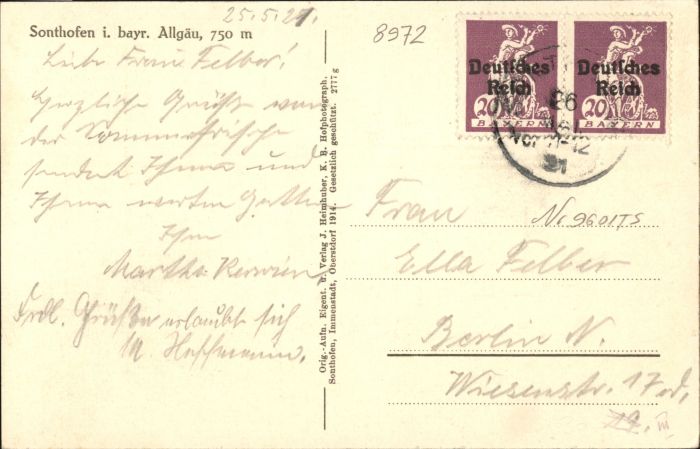 25.5.21.
Sonthofen i. bayr. Allgäu, 750 m
Liebe Frau Felber!
Herzliche Grüße von
der Sommerfrische
sendet Ihnen und
Ihrem werten Gatten
Ihre
Martha
Frdl. Grüße erlaubt sich
M. Hoffmann.
Orig.-Aufn. Eigent. u. Verlag J. Heimhuber, K. B. Hofphotograph,
Sonthofen, Immenstadt, Oberstdorf 1914. Gesetzlich geschützt. 2777 g
8972
Deutsches Reich
20 20
BAYERN
Deutsches Reich
20 20
BAYERN
26
Vor 11-12
21
Frau
Nr 9601TS
Ella Felber
Berlin N.
Wiesenstr. 17
III